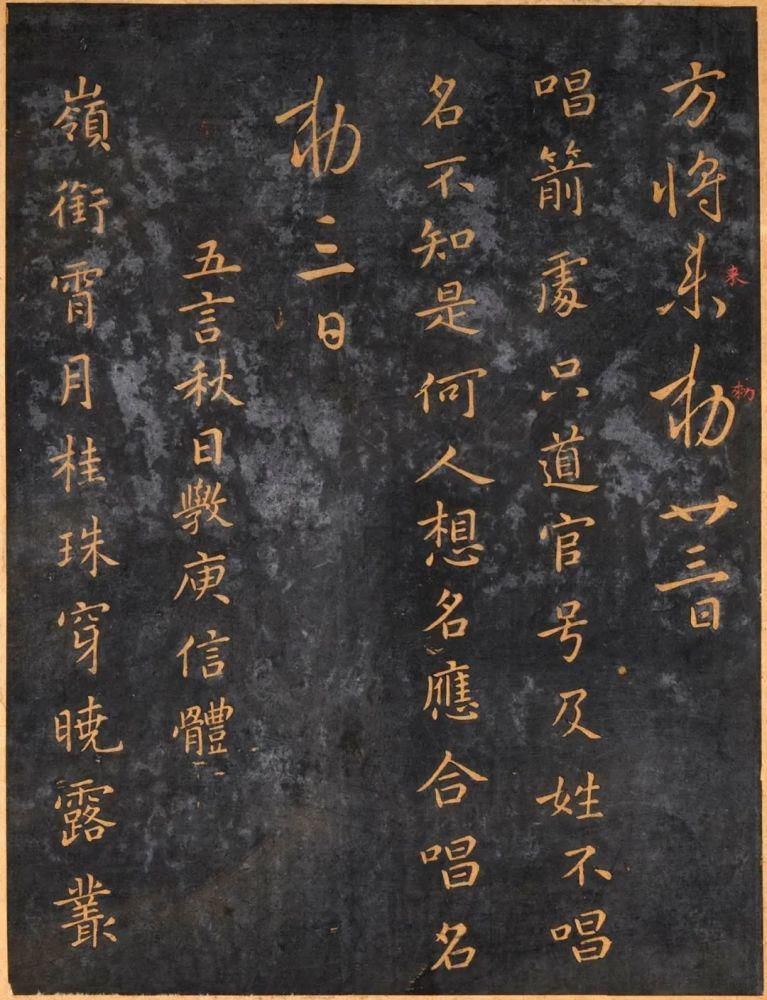 方將来勅廿三日
唱箭處只道官号及姓不唱
名不知是何人想名應合唱名
勅三日
五言秋日斆庾信體
嶺銜霄月桂珠穿曉露叢
来
勅